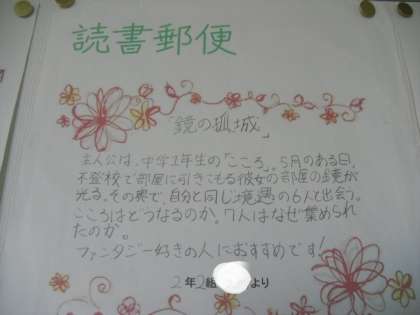 読書郵便
「鏡の孤城」
主人公は、中学1年生の「こころ」。5月のある日、
不登校で部屋に引きこもる彼女の部屋の鏡が
光る。その奥で、自分と同じ境遇の6人と出会う。
こころはどうなるのか。7人はなぜ集められ
たのか。
ファンタジー好きの人におすすめです!
2年2組 より